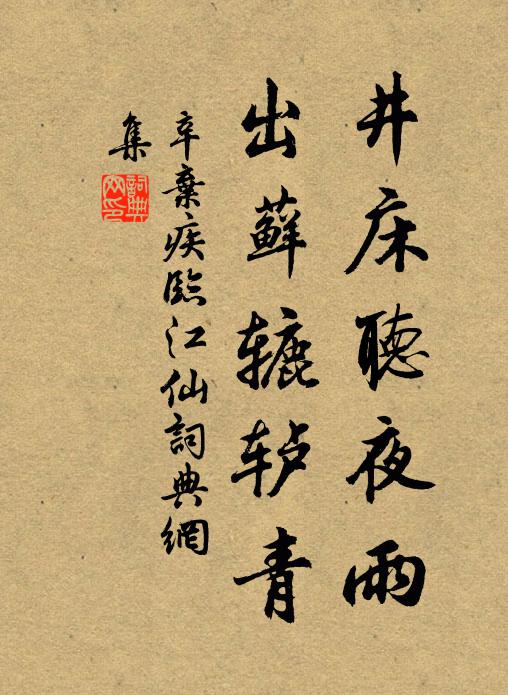 井床聽夜雨
出蘚辘轳青
辛棄疾臨江仙詞典網
集
詞典
网印